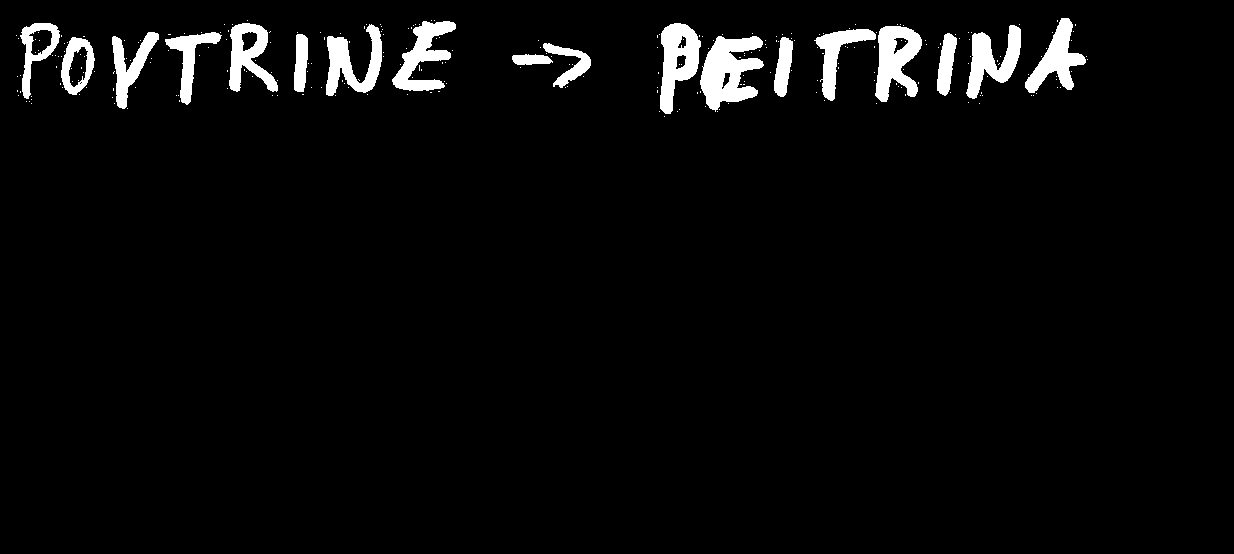 POYTRINE -> PEITRINA